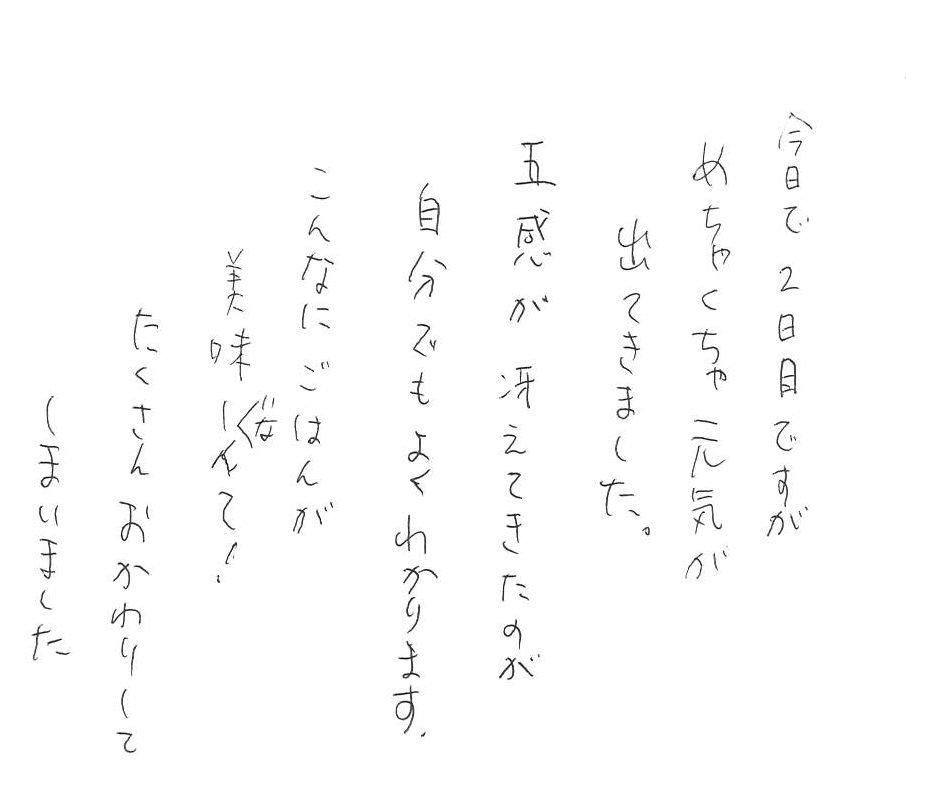 今日で2日目ですが
めちゃくちゃ元気が
出てきました。
五感が 冴えてきたのが
自分でもよくわかります.
こんなにごはんが
美味しいなんて!
たくさんおかわりして
しまいました